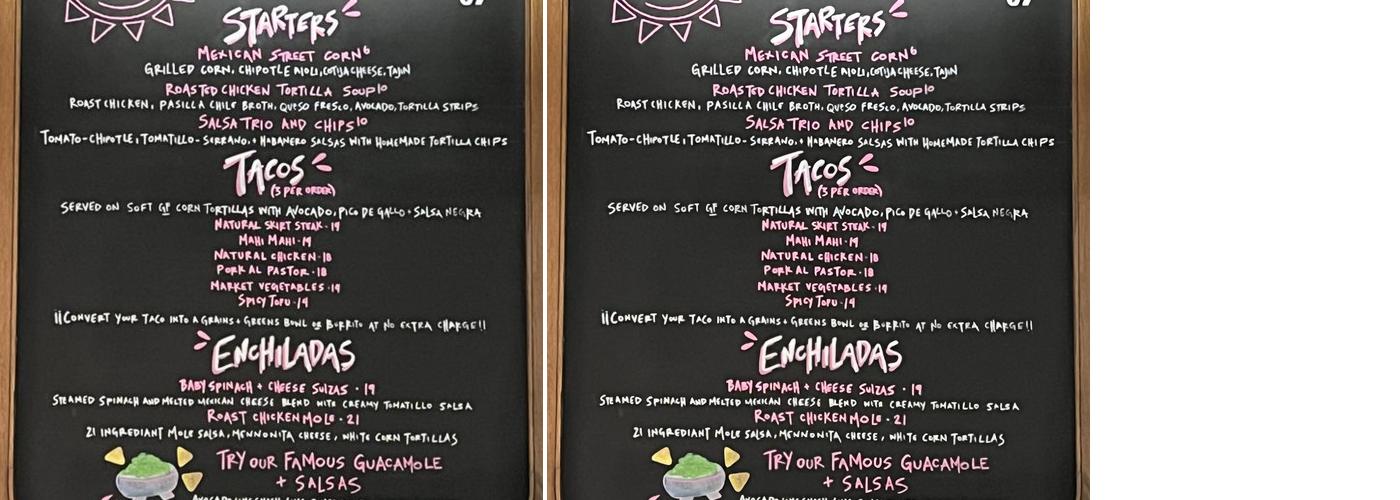 STARTERS
MEXICAN STREET CORN 6
GRILLED CORN, CHIPOTLE AIOLI, COTIJA CHEESE, TAJIN
ROASTED CHICKEN TORTILLA SOUP 10
ROAST CHICKEN, PASILLA CHILE BROTH, QUESO FRESCO, AVOCADO, TORTILLA STRIPS
SALSA TRIO AND CHIPS 10
TOMATO-CHIPOTLE, TOMATILLO-SERRANO, + HABANERO SALSAS WITH HOMEMADE TORTILLA CHIPS
TACOS
(3 PER ORDER)
SERVED ON SOFT GF CORN TORTILLAS WITH AVOCADO, PICO DE GALLO + SALSA NEGRA
NATURAL SKIRT STEAK · 19
MAHI MAHI · 19
NATURAL CHICKEN · 18
PORK AL PASTOR · 18
MARKET VEGETABLES · 19
SPICY TOFU · 19
¡¡CONVERT YOUR TACO INTO A GRAINS + GREENS BOWL OR BURRITO AT NO EXTRA CHARGE!!
ENCHILADAS
BABY SPINACH + CHEESE SUIZAS · 19
STEAMED SPINACH AND MELTED MEXICAN CHEESE BLEND WITH CREAMY TOMATILLO SALSA
ROAST CHICKEN MOLE · 21
21 INGREDIANT MOLE SALSA, MENNONITA CHEESE, WHITE CORN TORTILLAS
TRY OUR FAMOUS GUACAMOLE
+ SALSAS
STARTERS
MEXICAN STREET CORN 6
GRILLED CORN, CHIPOTLE AIOLI, COTIJA CHEESE, TAJIN
ROASTED CHICKEN TORTILLA SOUP 10
ROAST CHICKEN, PASILLA CHILE BROTH, QUESO FRESCO, AVOCADO, TORTILLA STRIPS
SALSA TRIO AND CHIPS 10
TOMATO-CHIPOTLE, TOMATILLO-SERRANO, + HABANERO SALSAS WITH HOMEMADE TORTILLA CHIPS
TACOS
(3 PER ORDER)
SERVED ON SOFT GF CORN TORTILLAS WITH AVOCADO, PICO DE GALLO + SALSA NEGRA
NATURAL SKIRT STEAK · 19
MAHI MAHI · 19
NATURAL CHICKEN · 18
PORK AL PASTOR · 18
MARKET VEGETABLES · 19
SPICY TOFU · 19
¡¡CONVERT YOUR TACO INTO A GRAINS + GREENS BOWL OR BURRITO AT NO EXTRA CHARGE!!
ENCHILADAS
BABY SPINACH + CHEESE SUIZAS · 19
STEAMED SPINACH AND MELTED MEXICAN CHEESE BLEND WITH CREAMY TOMATILLO SALSA
ROAST CHICKEN MOLE · 21
21 INGREDIANT MOLE SALSA, MENNONITA CHEESE, WHITE CORN TORTILLAS
TRY OUR FAMOUS GUACAMOLE
+ SALSAS